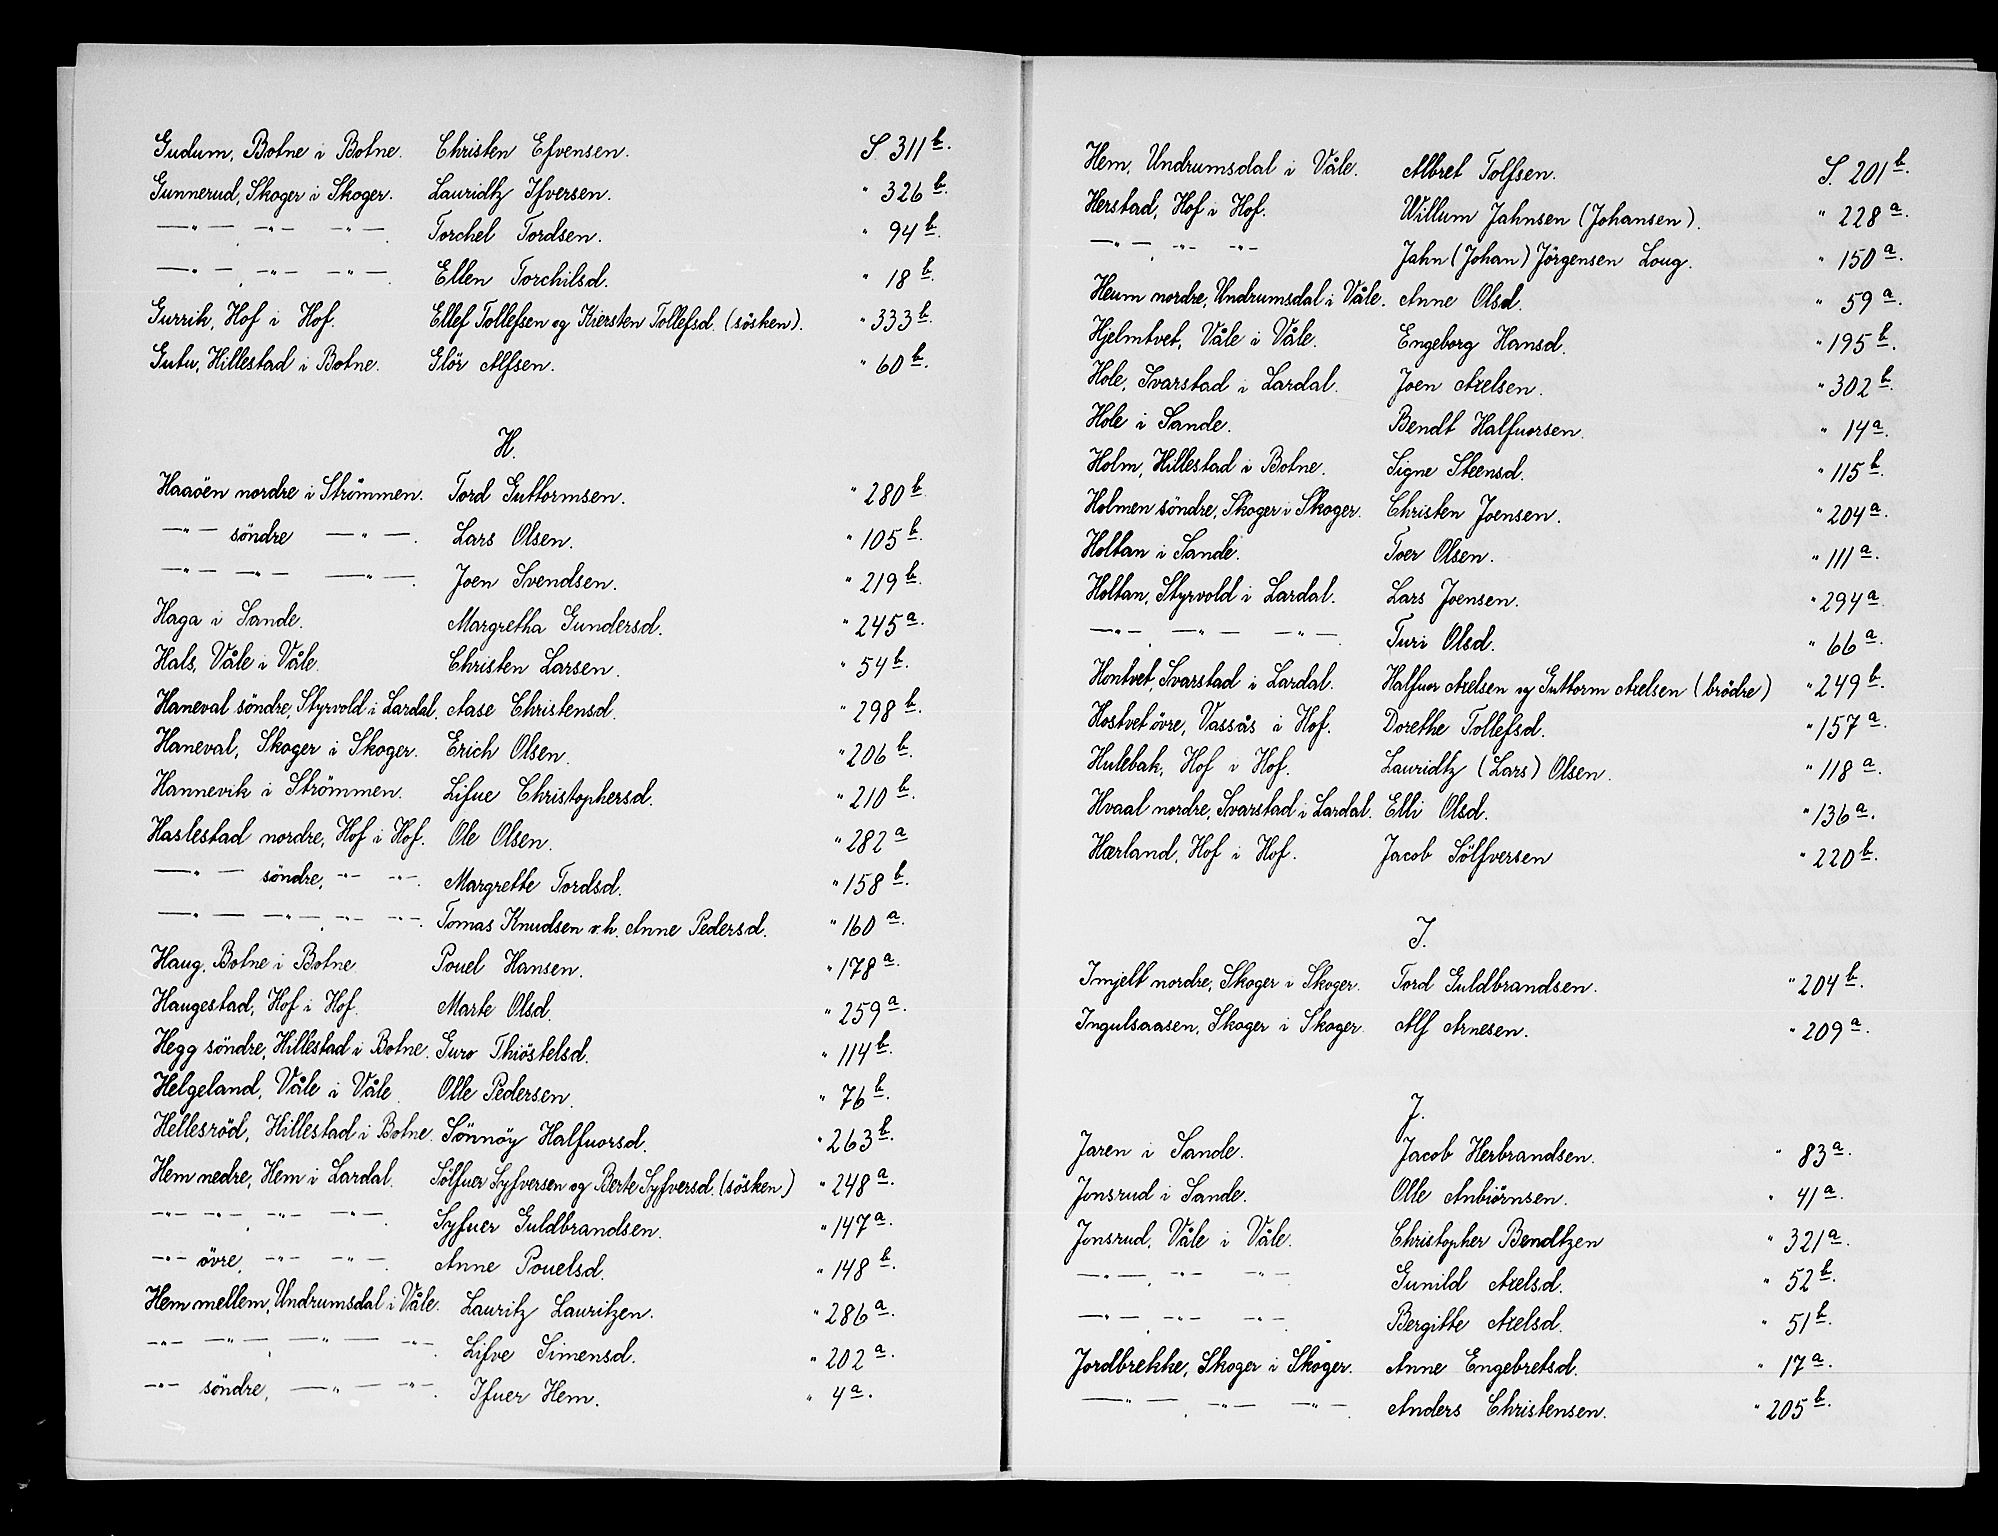 Gudum, Botne i Botne. Christen Efvensen. S 311 b.
Gunnerud, Skoger i Skoger. Lauridtz Ifversen. " 326 b.
—"—, —"— —"—. Torchel Tordsen. " 94 b.
—"—, —"— —"—. Ellen Torchilsd. " 18 b.
Gurrik, Hof i Hof. Ellef Tollefsen og Kiersten Tollefsd. (søsken). " 333 b.
Gutu, Hillestad i Botne. Glör Alfsen. " 60 b.
H.
Haaöen nordre i Strömmen. Tord Guttormsen. " 280 b.
—"— söndre —"—. Lars Olsen. " 105 b.
—"— —"— —"—. Joen Svendsen. " 219 b.
Haga i Sande. Margretha Gundersd. " 245 a.
Hals, Våle i Våle. Christen Larsen. " 54 b.
Haneval söndre, Styrvold i Lardal. Aase Christensd. " 298 b.
Haneval, Skoger i Skoger. Erich Olsen. " 206 b.
Hannevik i Strömmen. Lifue Christophersd. " 210 b.
Haslestad nordre, Hof i Hof. Ole Olsen. " 282 a
—"— söndre, —"— —"—. Margrette Tordsd. " 158 b.
—"— —"—, —"— —"—. Tomas Knudsen v.h. Anne Pedersd. " 160 a.
Haug, Botne i Botne. Pouel Hansen. " 178 a.
Haugestad, Hof i Hof. Marte Olsd. " 259 a.
Hegg söndre, Hillestad i Botne. Guro Thiöstelsd. " 114 b.
Helgeland, Våle i Våle. Olle Pedersen. " 76 b.
Hellesröd, Hillestad i Botne. Sönnöy Halfuorsd. " 263 b.
Hem nedre, Hem i Lardal. Sölfuer Syfversen og Berte Syfversd. (sösken) " 248 a.
—"— —"—, —"— —"—. Syfuer Guldbrandsen. " 147 a.
—"— övre, —"— —"—. Anne Pouelsd. " 148 b.
Hem mellem, Undrumsdal i Våle. Lauritz Lauritzen. " 286 a.
—"— —"—, —"— —"—. Lifve Simensd. " 202 a.
—"— söndre, —"— —"—. Ifuer Hem. " 4 a.
Hem, Undrumsdal i Våle. Albret Tolfsen. S. 201 b.
Herstad, Hof i Hof. Willum Jahnsen (Johansen). " 228 a.
—"—, —"— —"— Jahn (Johan) Jörgensen Loug. " 150 a.
Heum nordre, Undrumsdal i Våle. Anne Olsd. " 59 a.
Hjelmtvet, Våle i Våle. Engeborg Hansd. " 195 b.
Hole, Svarstad i Lardal. Joen Axelsen. " 302 b.
Hole i Sande. Bendt Halfuorsen. " 14 a.
Holm, Hillestad i Botne. Signe Steensd. " 115 b.
Holmen söndre, Skoger i Skoger. Christen Joensen. " 204 a.
Holtan i Sande. Toer Olsen. " 111 a.
Holtan, Styrvold i Lardal. Lars Joensen. " 294 a.
—"—, —"— —"—. Turi Olsd. " 66 a.
Hontvet, Svarstad i Lardal. Halfuer Axelsen og Guttorm Axelsen (brödre) " 249 b.
Hostvet övre, Vassås i Hof. Dorethe Tollefsd. " 157 a.
Hulebak, Hof i Hof. Lauridtz (Lars) Olsen. " 118 a.
Hvaal nordre, Svarstad i Lardal. Elli Olsd. " 136 a.
Hærland, Hof i Hof. Jacob Sölfversen " 220 b.
I.
Imjelt nordre, Skoger i Skoger. Tord Guldbrandsen. " 204 b.
Ingulsaasen, Skoger i Skoger. Alf Arnesen. " 209 a.
J.
Jaren i Sande. Jacob Herbrandsen. " 83 a.
Jonsrud i Sande. Olle Anbiörnsen. " 41 a.
Jonsrud, Våle i Våle. Christopher Bendtzen " 321 a.
—"—, —"— —"—. Gunild Axelsd. " 52 b.
—"—, —"— —"—. Bergitte Axelsd. " 51 b.
Jordbrekke, Skoger i Skoger. Anne Engebretsd. " 17 a.
—"—, —"— —"—. Anders Christensen. " 205 b.